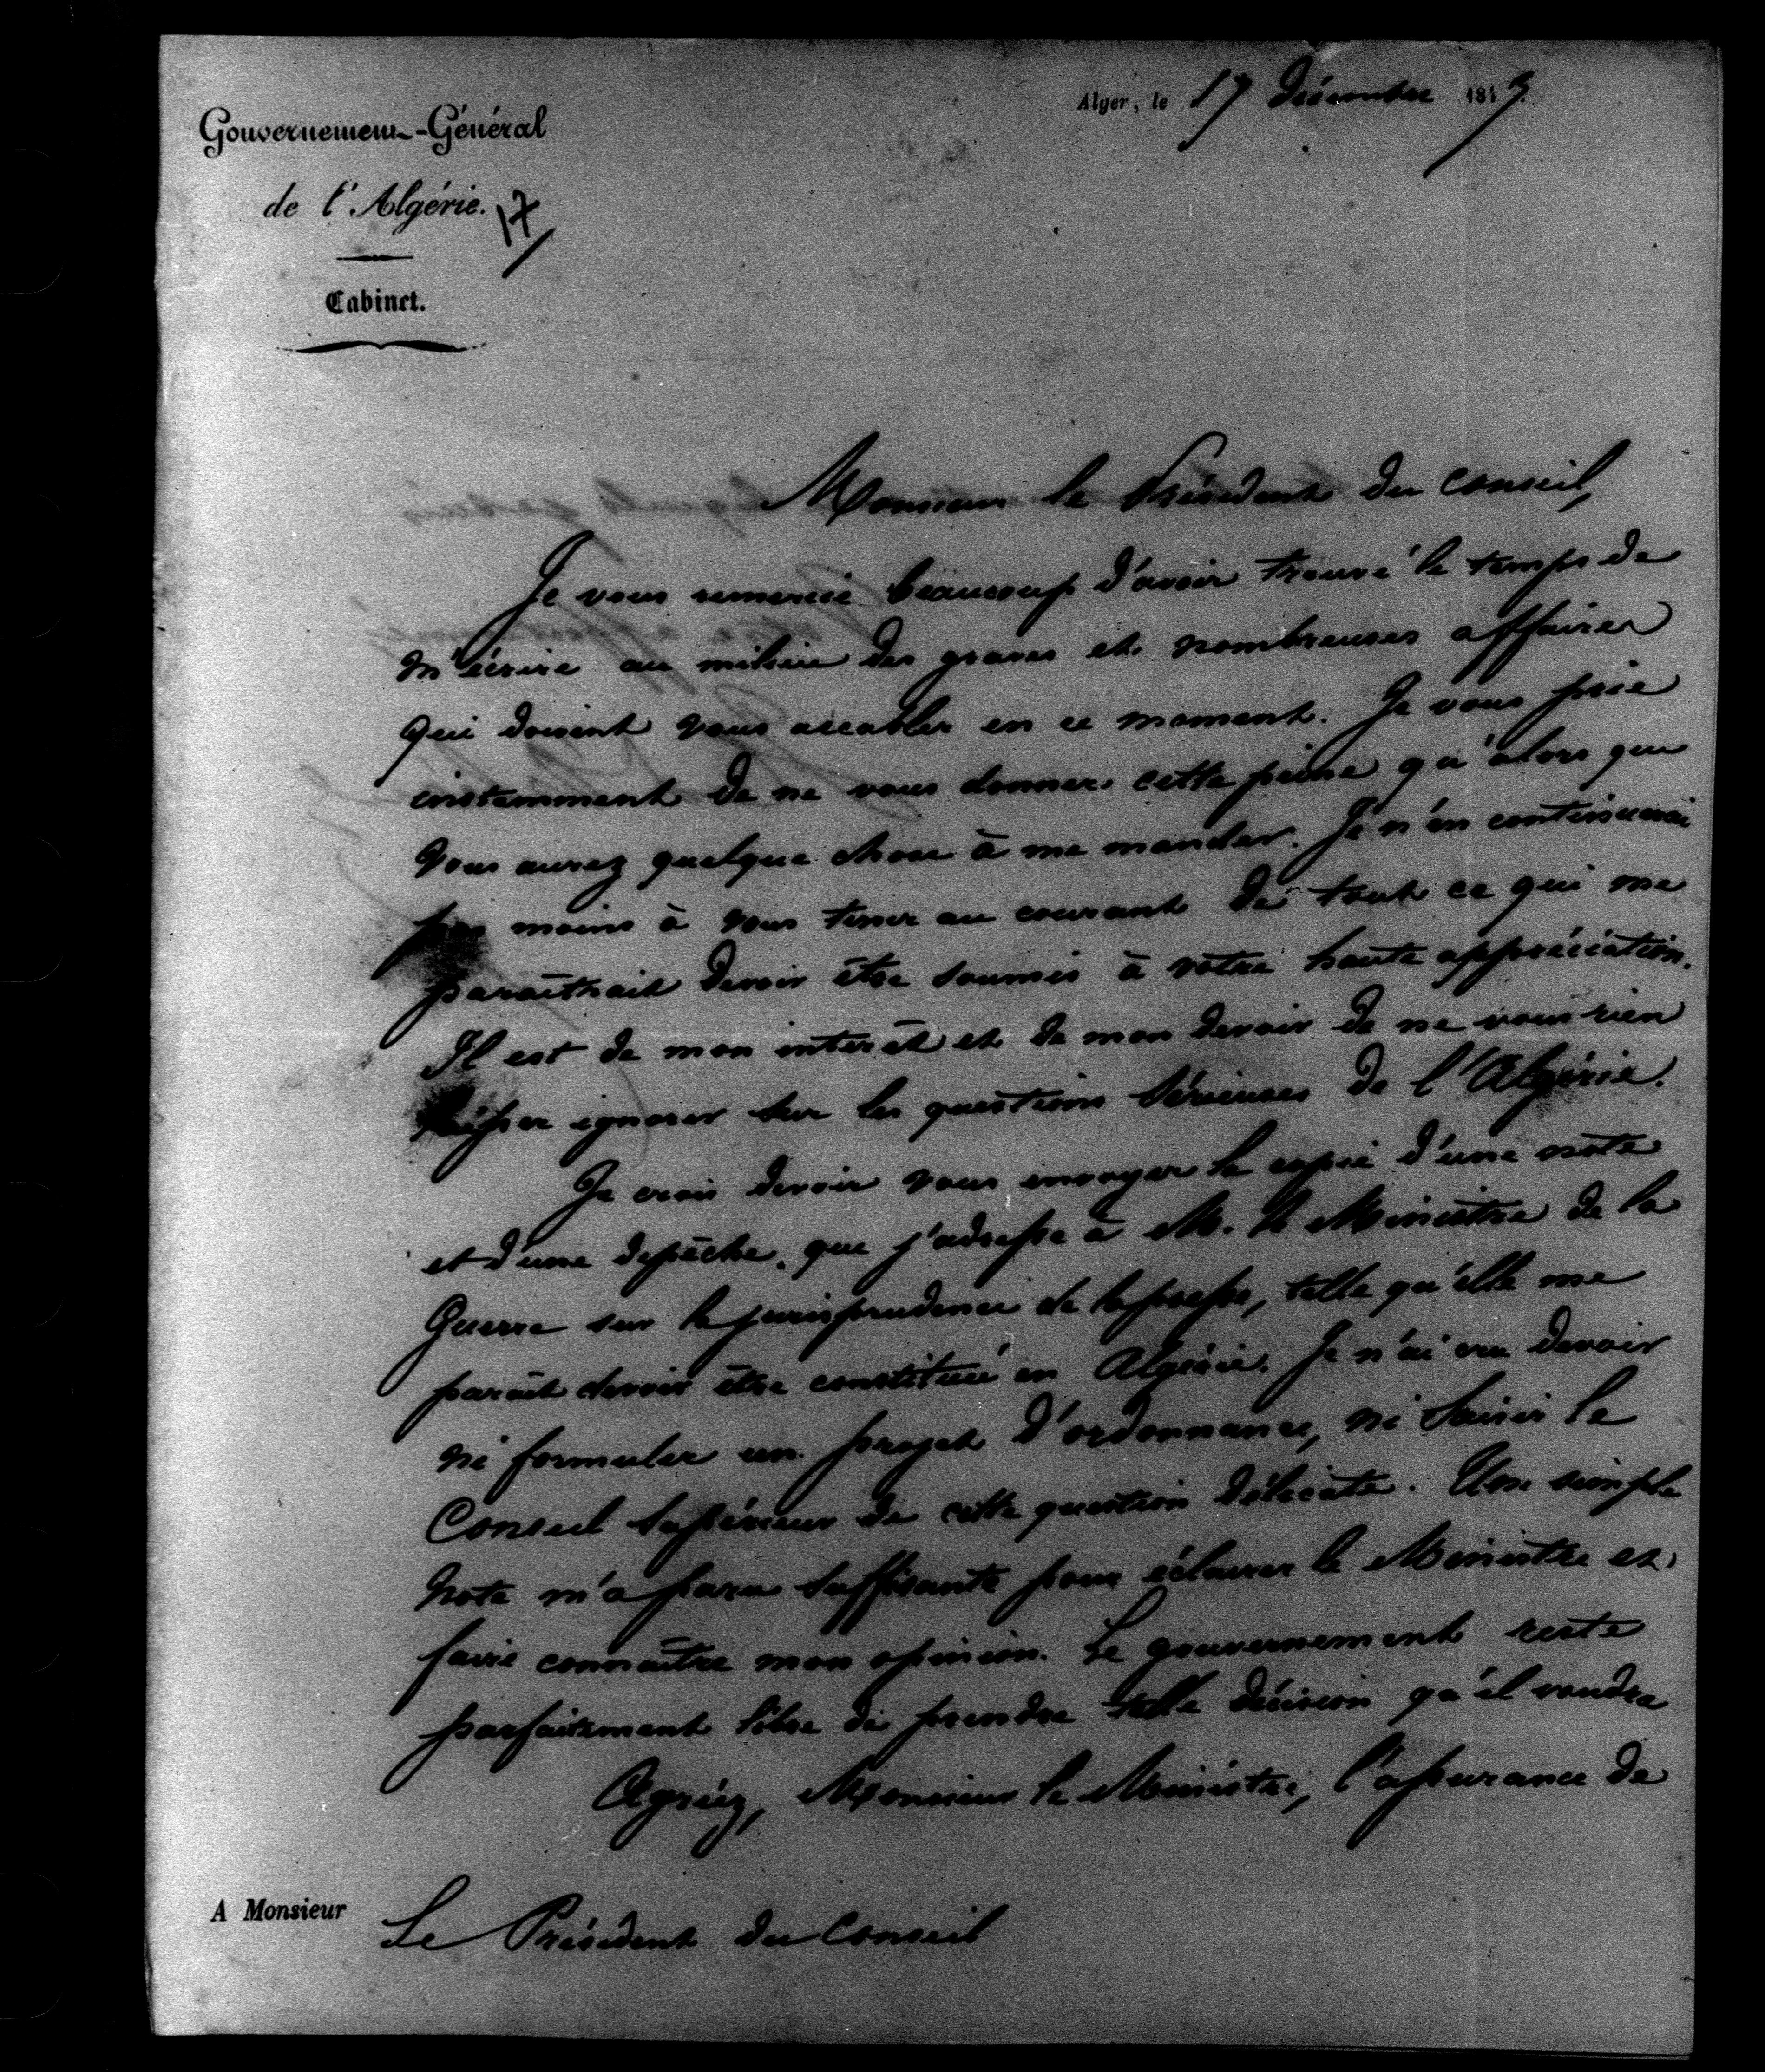 Alger, le 17 décembre 184
Gouvernement-Général
de l'Algérie.
17
Cabinet.
Monsieur le Président du Conseil,
Je vous remercie beaucoup d'avoir trouvé le temps de
m'écrire au milieu des graves et nombreuses affaires
qui doivent vous accabler en ce moment. Je vous prie
instamment de ne vous donner cette peine qu'alors que
vous aurez quelque chose à me mander. Je n'en continuerai
pas moins à vous tenir au courant de tout ce qui me
paraîtrait devoir être soumis à votre haute appréciation.
Il est de mon intérêt et de mon devoir de ne vous rien
laisser ignorer sur les questions sérieuses de l'Algérie.
Je crois devoir vous envoyer la copie d'une note
et d'une dépêche, que j'adresse à M. le Ministre de la
Guerre sur la jurisprudence de la presse, telle qu'elle me
parait devoir être constitué en Algérie. Je n'ai cru devoir
ni formuler un projet d'ordonnance, ni saisir le
Conseil supérieur de cette question délicate. Une simple
note m'a paru suffisante pour éclairer le Ministre et
faire connaître mon opinion. Le gouvernement reste
parfaitement libre de prendre telle décision qu'il voudra
Agréez, Monsieur le Ministre, l'assurance de
A Monsieur Le Président du Conseil